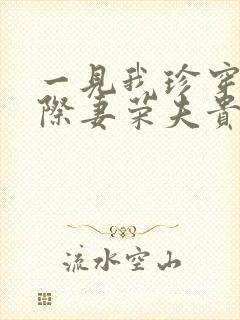 一見我珍穿
際妻荣夫貴
流水空山